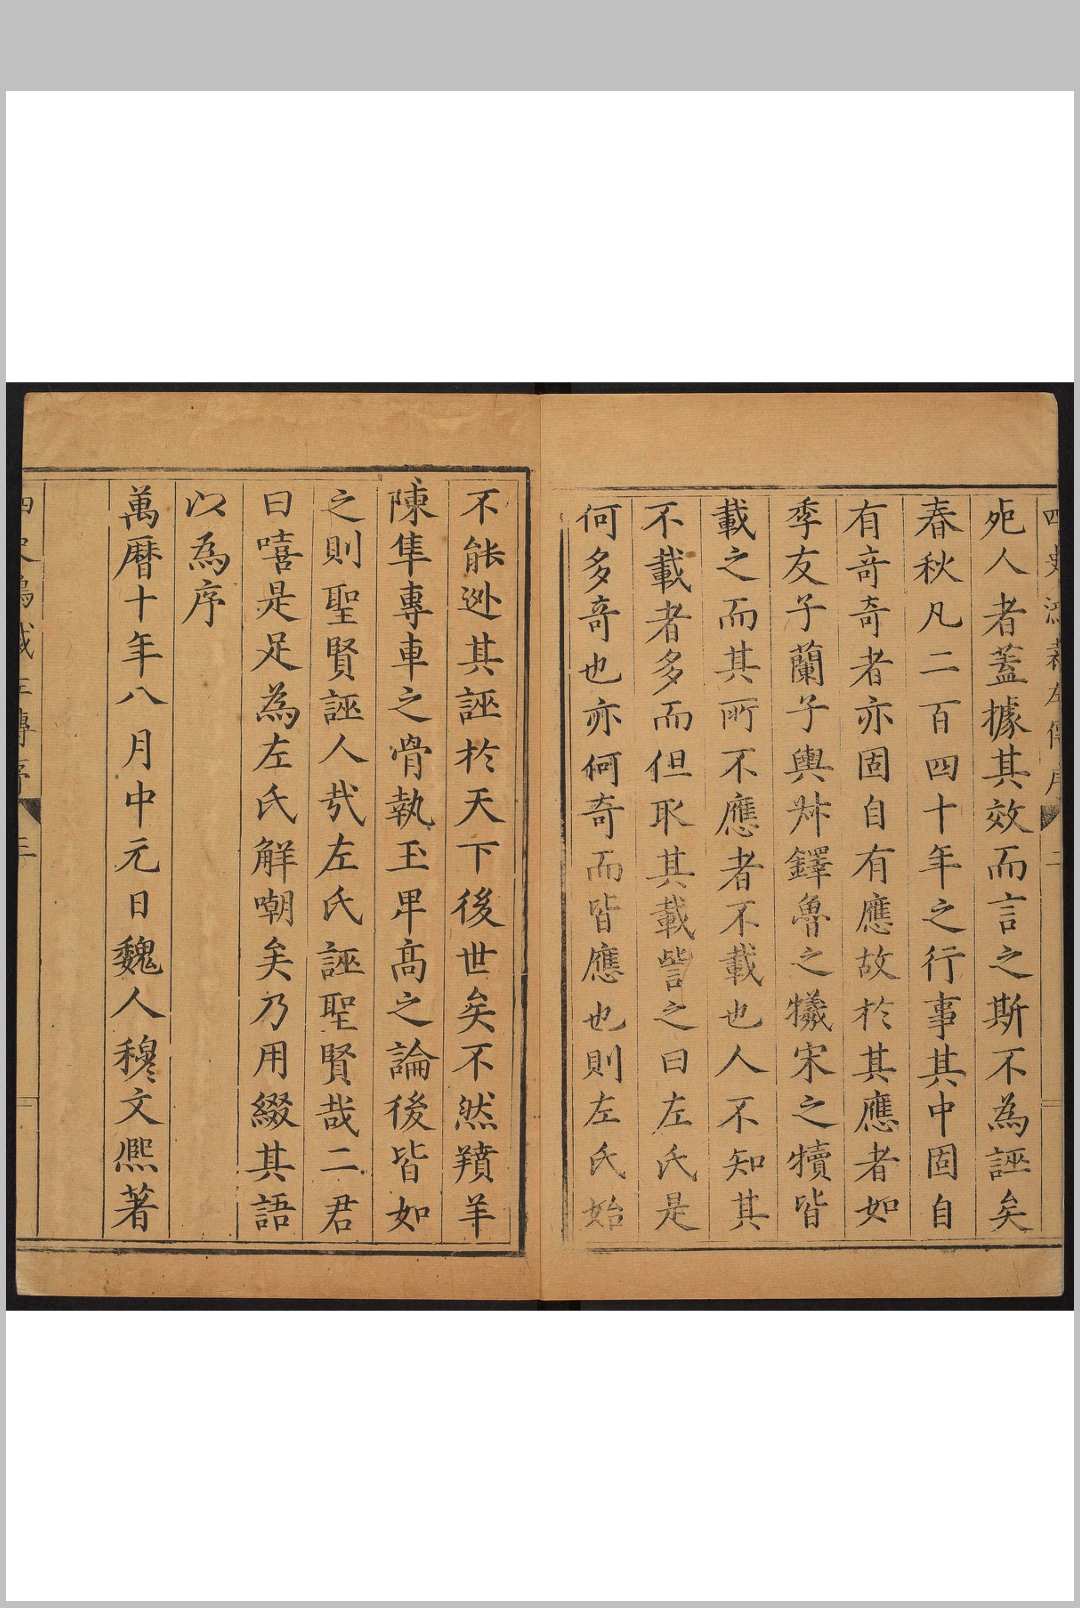 四史鴻裁左傳序 二
夗人者蓋據其效而言之斯不為誣矣
春秋凡二百四十年之行事其中固自
有竒奇者亦固自有應故於其應者如
季友子蘭子輿叔鐸魯之犧宋之犢皆
載之而其所不應者不載也人不知其
不載者多而但取其載訾之曰左氏是
何多奇也亦何奇而皆應也則左氏始
不能逊其誣於天下後世矣不然羵羊
陳隼專車之骨執玉卑高之論後皆如
之則聖賢誣人哉左氏誣聖賢哉二君
曰嘻是足為左氏解嘲矣乃用綴其語
以為序
萬曆十年八月中元日魏人穆文熙著